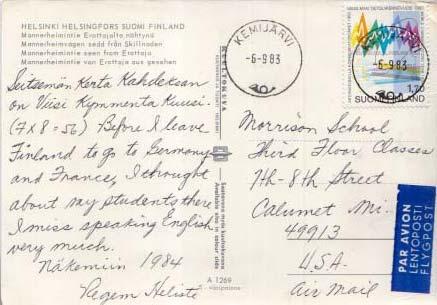 HELSINKI HELSINGFORS SUOMI FINLAND
Mannerheimintie Erottajalta nähtynä
Mannerheimvägen sedd från Skillnaden
Mannerheimintie seen from Erottaja
Mannerheimintie von Erottaja aus gesehen
Seitsemän Kerta Kahdeksan
on Viisi Kymmenta Kuusi.
(7x8=56) Before I leave
Finland to go to Germany
and France, I thought
about my students there
I miss speaking English
very much.
Näkemiin 1984
A 1269
KEMIJÄRVI
-6-9 83
KEMIJÄRVI
-6-9 83
1,70
SUOMI FINLAND
Morrison School
Third Floor Classes
7th-8th Street
Calumet Mi.
49913
U.S.A.
Air Mail
PAR AVION
LENTOPOSTI
FLYGPOST